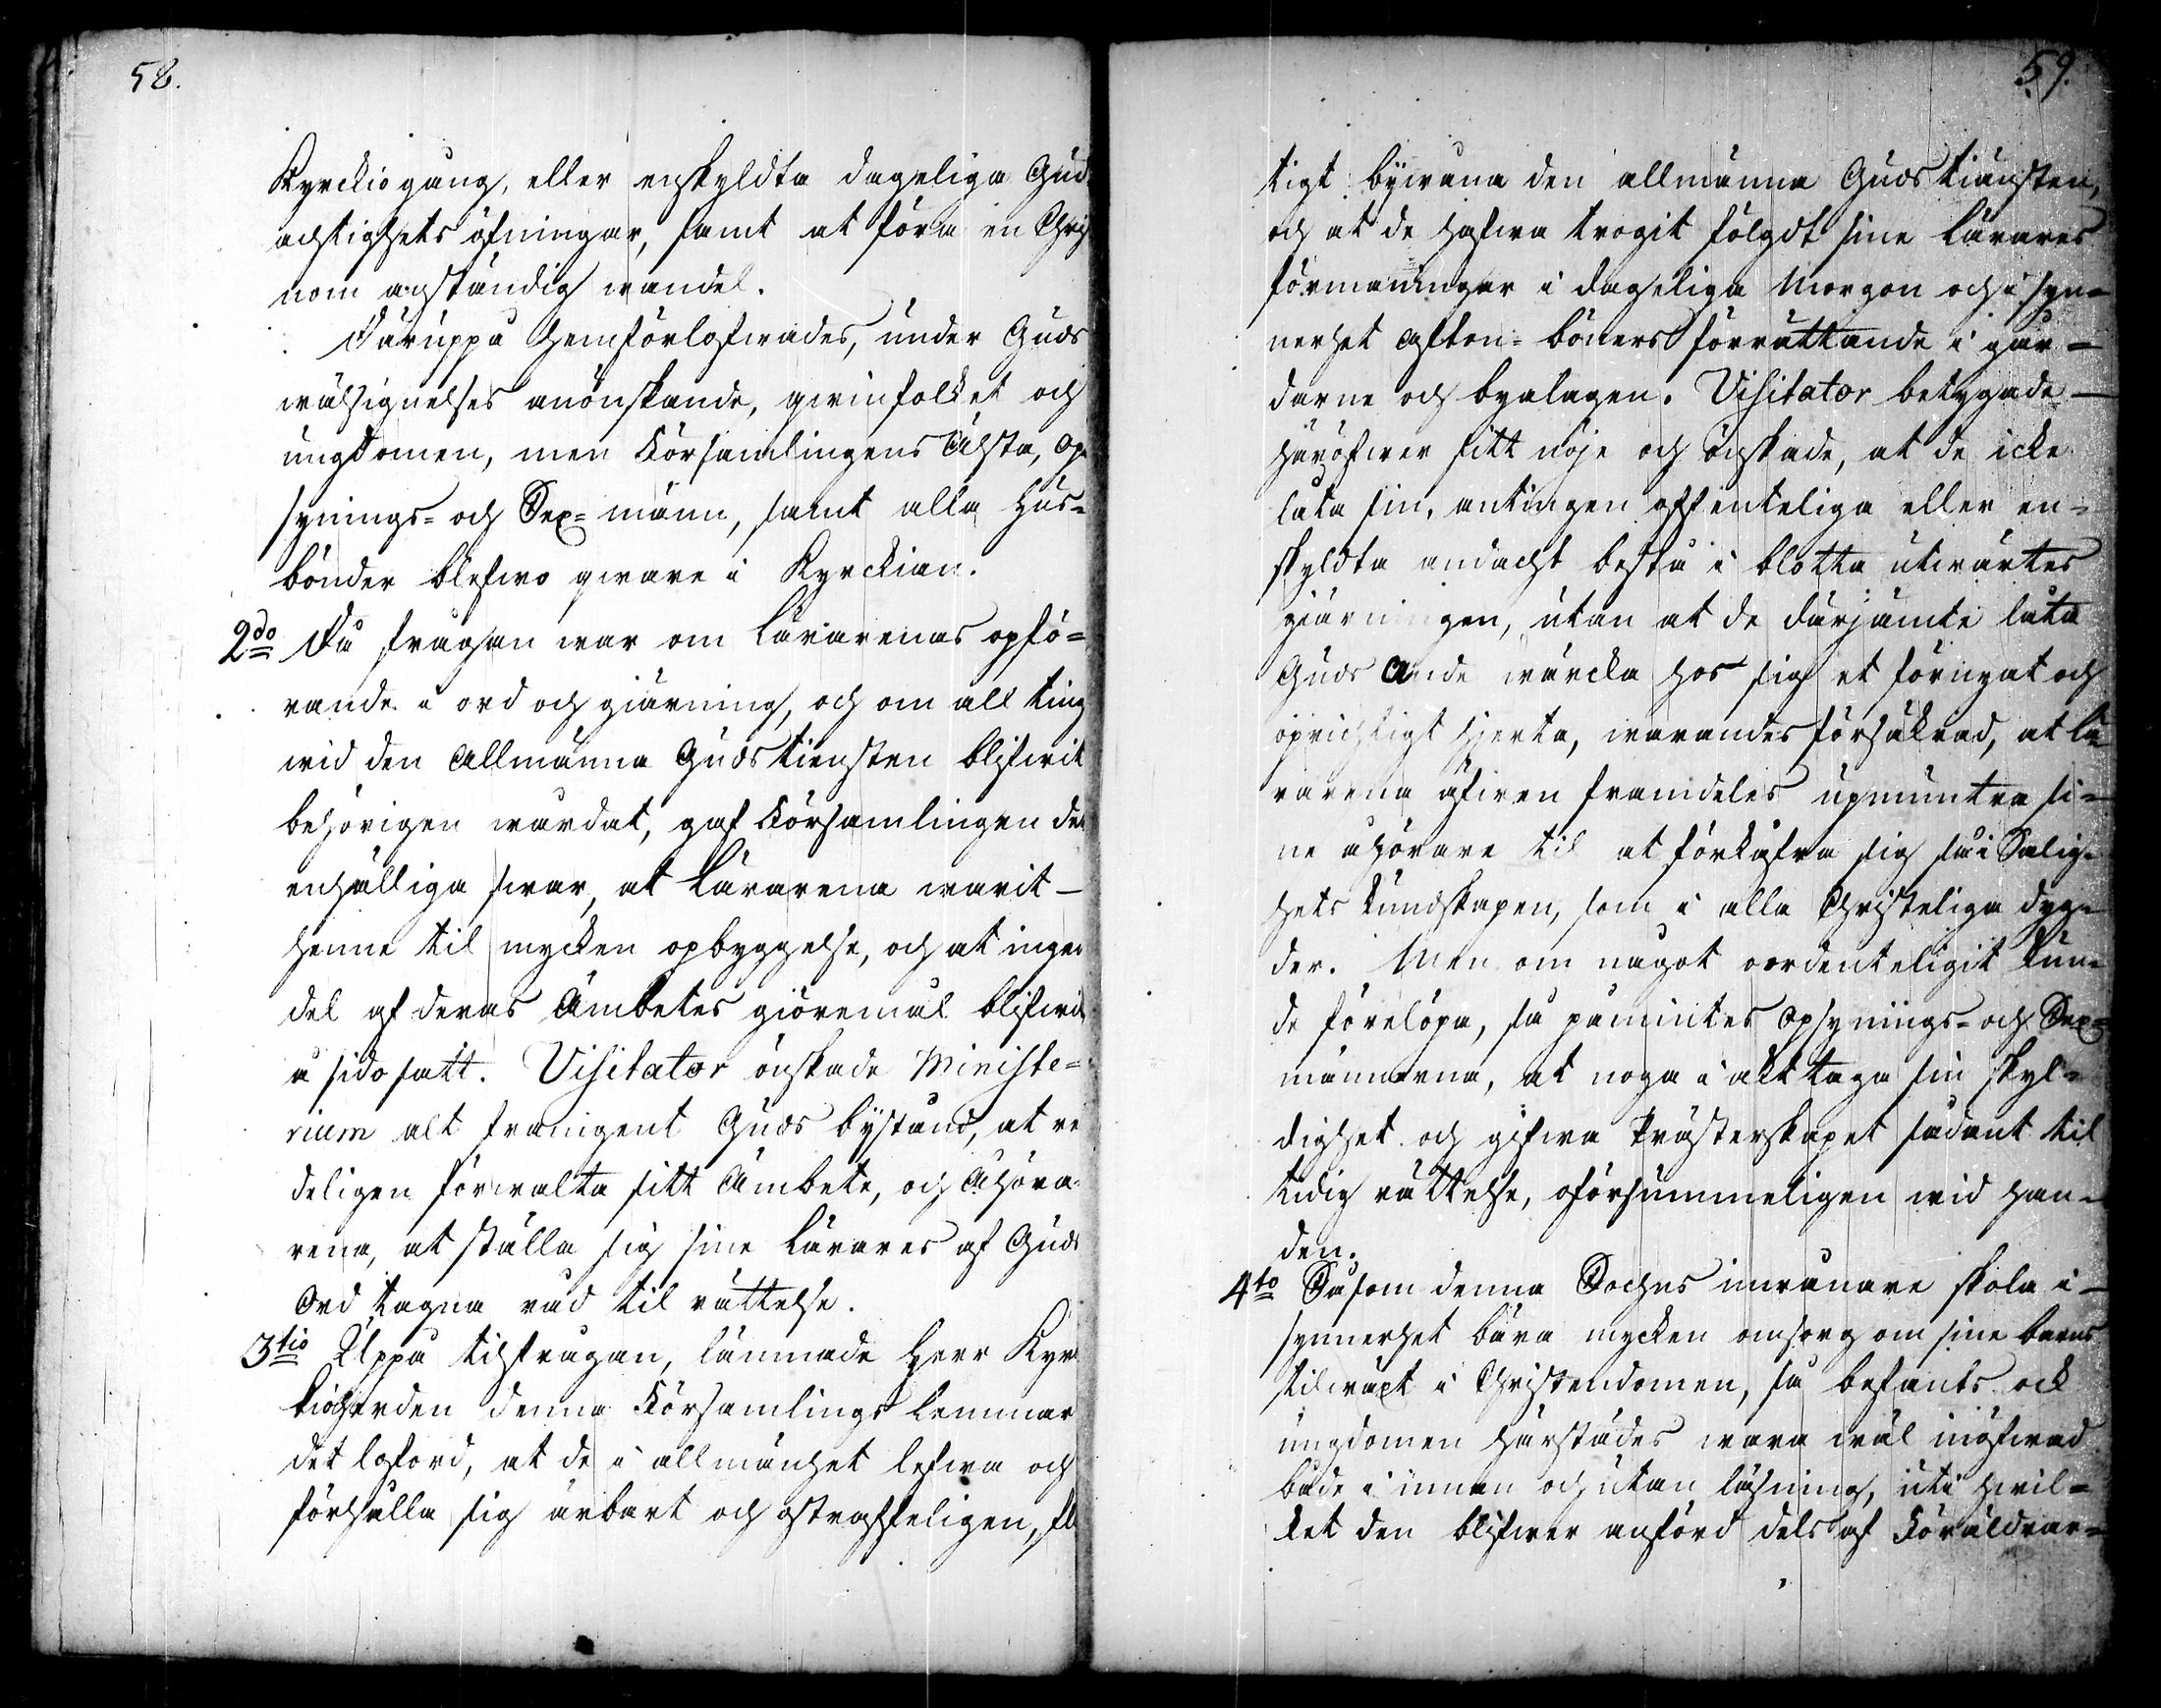 58.
Kyrckiogång, eller enskyldta dageliga Gud
achtighets öfningar, samt at föra en Chri
nom anständig wandel.
Däruppå hemförlofwades, under Guds
wälsignelses anönskande, qwinfolket och
ungdomen, men Församlingens Älsta, Op
synings- och Sex-männ, samt alla Hus-
bönder blefwo qware i Kyrckian.
2do Då frågan war om Lärarenas opfö-
rande i ord och giärning, och om all ting
wid den Allmänna Gudstiensten blifwit
behörigen wårdat, gaf Församlingen det
enhälliga swar, at Lärarena warit
henne til mycken opbyggelse, och at ingen
del af deras Ämbetes giöremål blifwit
å sido satt. Visitator önskade Ministe-
rium alt framgent Guds bystånd, at re
deligen förwalta sitt Ämbete, och Åhöra
rena, at ställa sig sine Lärares af Guds
Ord tagna råd til rättelse.
3tio Uppå tilfrågan, lämnade Herr Kyrc
kioherden denna Församlings Lemmar
det loford, at de i allmänhet lefwa och
förhålla sig ärbart och ostraffeligen, fl
59.
tigt bywana den allmänna Guds tiänsten,
och at de hafwa trogit fölgdt sine Lärares
förmaningar i dageliga Morgon och i syn-
nerhet Afton-böners förrättande i går-
darne och byalagen. Visitator betygade
häröfwer sitt nöje och önskade, at de icke
låta sin, antingen offenteliga eller en-
skyldta andacht bestå i blotta utwärtes
giärningen, utan at de därjämte låta
Guds Ande wärcka hos sig et förnyat och
oprichtigt hjerta, warandes försäkrad, at Lä
rarena äfwen framdeles upmuntra si-
ne åhörare til at förkofra sig så i Salig-
hets kundskapen, som i alla Christeliga dyg-
der. Men om något oordenteligit kun-
de förelöpa, så påmintes Opsynings- och Sex-
männerna, at noga i akttaga sin skyl-
dighet och gifwa Prästerskapet sådant til
tidig rättelse, oförsummeligen wid han-
den.
4to Såsom denna Sochns inwånare skola i
synnerhet bära mycken omsorg om sine barns
tilwäxt i Christendomen, så befants ock
ungdomen härstädes wara wäl inöfwad
både i innan och utan läsning, uti hwil-
ket den blifwer anförd dels af Föräldrar-